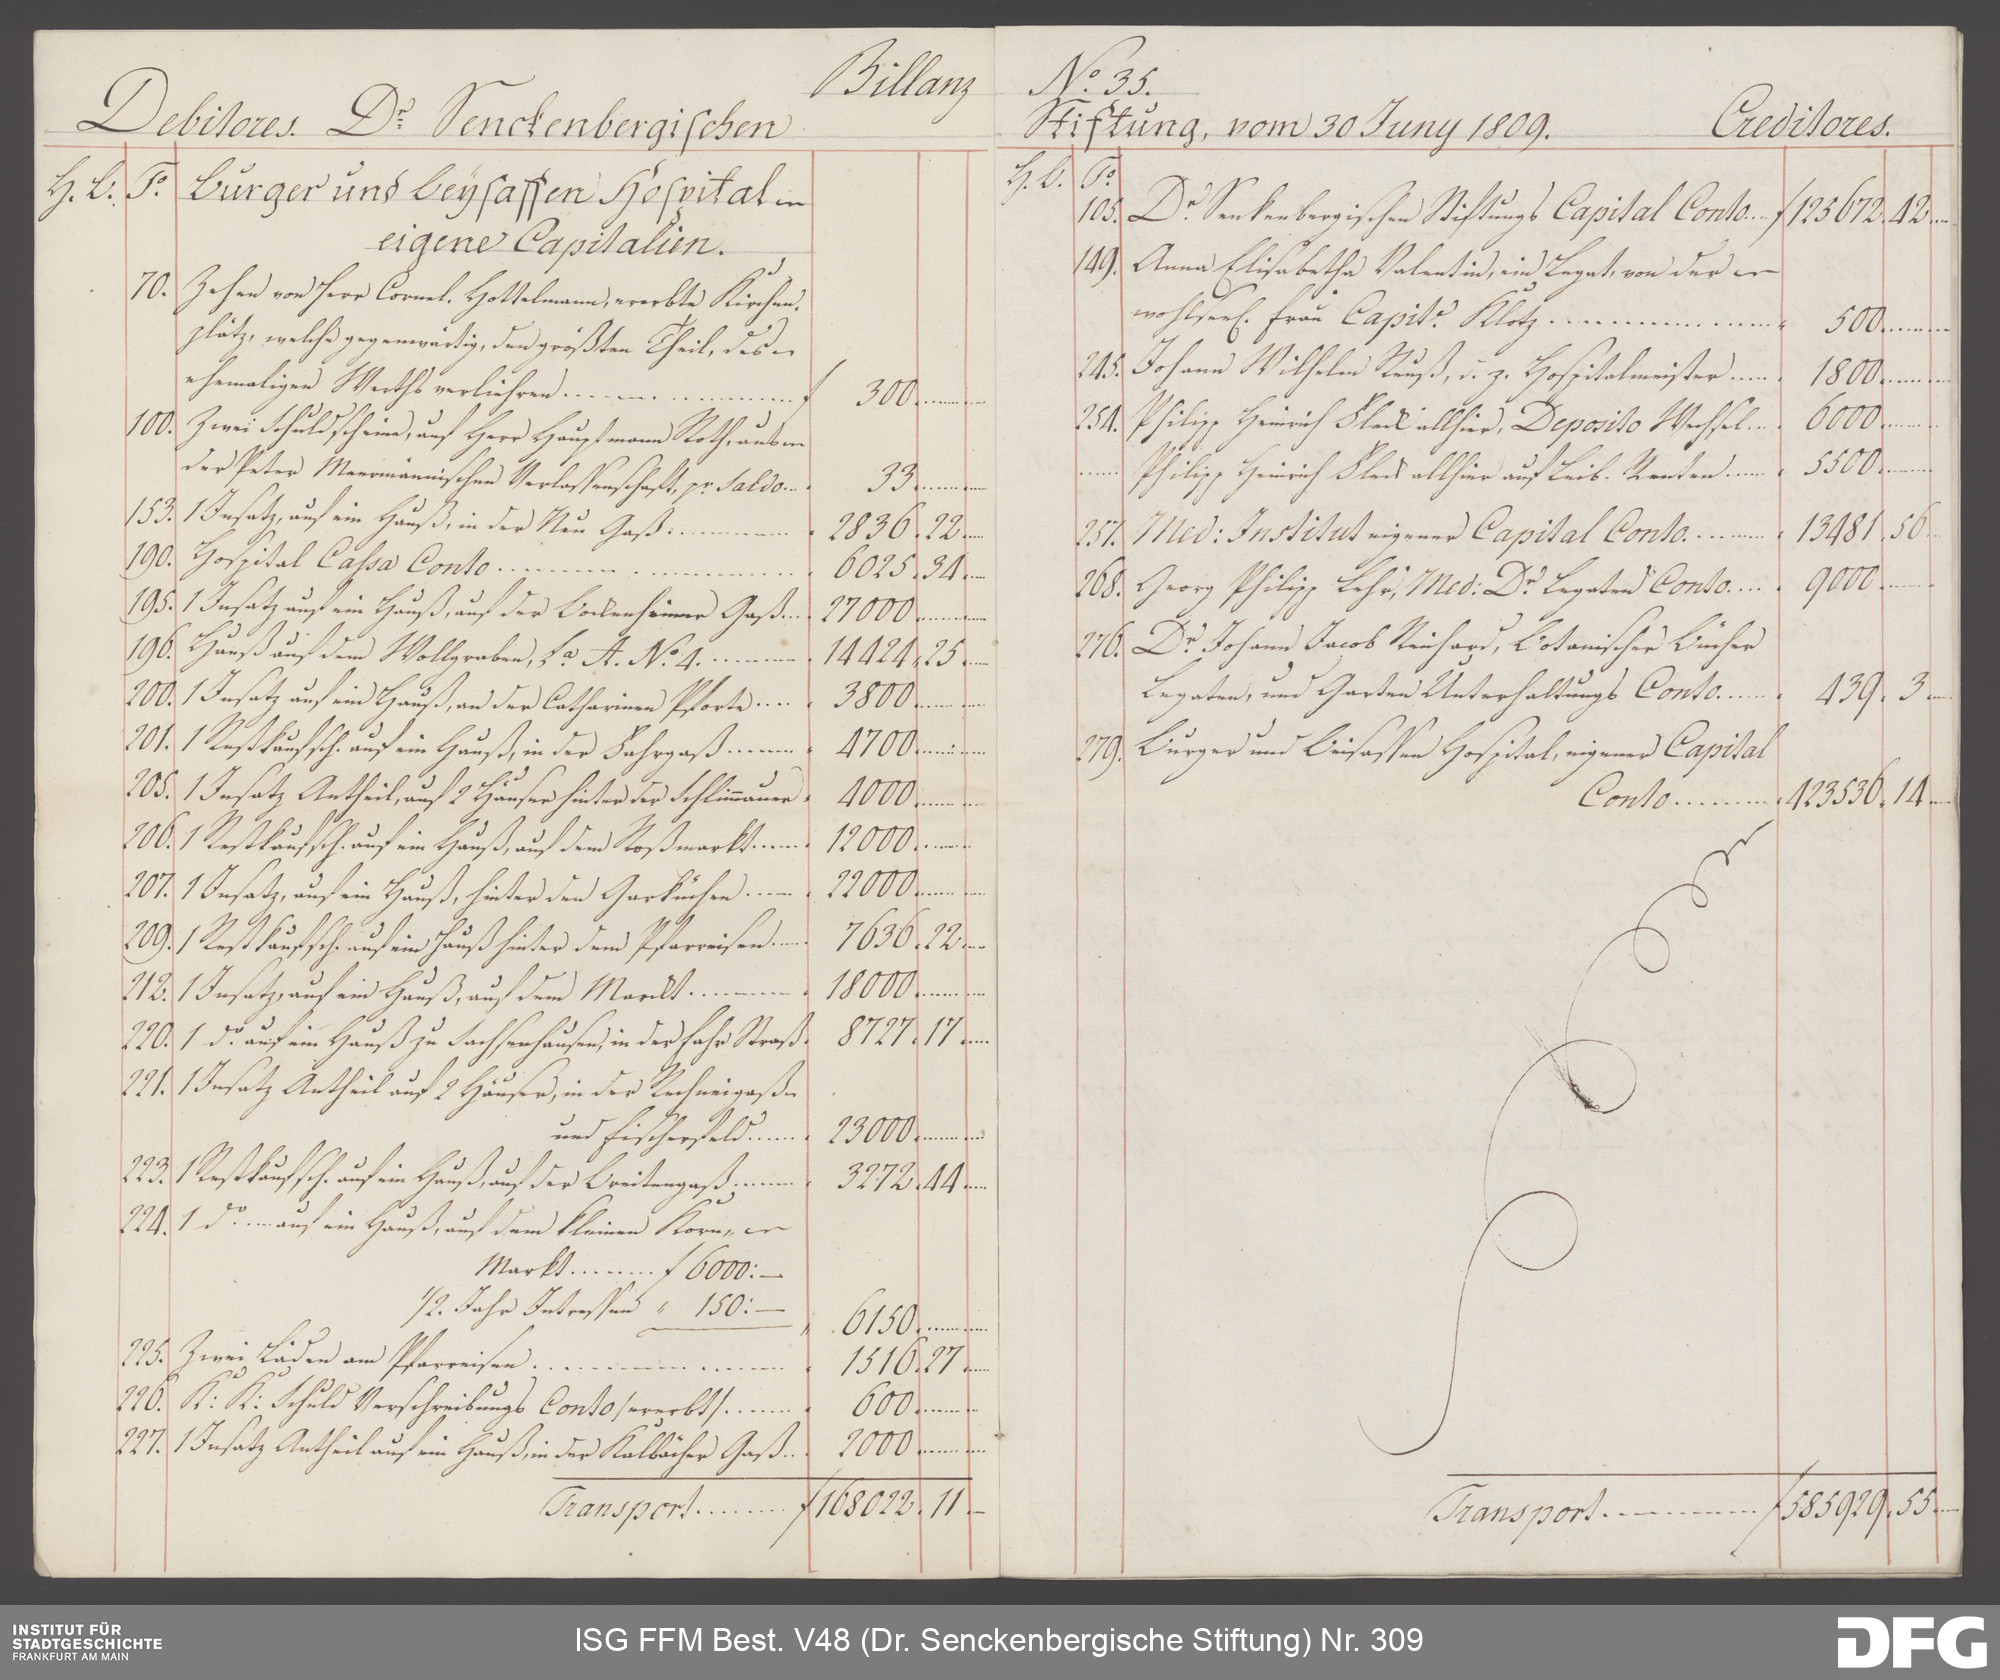 Billanz
Debitores. Dr. Senckenbergischen
H. B. Fo. Burger und Beysassen Hospital
eigene Capitalien.
70. Zehen von Herr Cornel. Hottelmann, ererbte Kirchen-
plätz, welche gegenwärtig, den größten Theil, des
ehemaligen Werths verliehren ...... f 300 ......
100. Zwei Schuldscheine, auf Herr Hauptmann Roth, aus
der Peter Meermännischen Verlassenschaft, pr. Saldo ... 33 ......
153. 1 Insatz, auf ein Hauß, in der Neu Gaß ...... 2836. 22 ...
190. Hospital Cassa Conto ...... 6025. 34 ...
195. 1 Insatz auf ein Hauß, auf der Bockenheimer Gaß ... 27000 ......
196. Hauß auf dem Wollgraben, La. A. No. 4. ...... 14424. 25 ...
200. 1 Insatz auf ein Hauß, an der Catharinen Pforte .... 3800 ......
201. 1 Restkaufsch. auf ein Hauß, in der Fahrgaß ...... 4700 ......
205. 1 Insatz Antheil, auf 2 Häuser hinter der Schlimmauer 4000 ......
206. 1 Restkaufsch. auf ein Hauß, auf dem Roßmarkt ...... 12000 ......
207. 1 Insatz, auf ein Hauß, hinter den Garküchen ...... 22000 ......
209. 1 Restkaufsch. auf ein Hauß hinter dem Pfarreisen ..... 7636. 22 ...
212. 1 Insatz, auf ein Hauß, auf dem Marckt ...... 18000 ......
220. 1 do. auf ein Hauß zu Sachsenhausen, in der Fahr Straß. 8727. 17 ...
221. 1 Insatz Antheil auf 2 Häuser, in der Rechneigaß
und Fischerfeld ...... 23000 ......
223. 1 Restkaufsch. auf ein Hauß, auf der Breitengaß ...... 3272. 44 ...
224. 1 do. ... auf ein Hauß, auf dem kleinen Korn,,
Markt ...... f 6000:—
1/2. Jahr Intressen " 150:— 6150 ......
225. Zwei Läden am Pfarreisen ...... 1516. 27 ...
226. K: K: Schuld Verschreibungs Conto /ererbt/ ...... 600 ......
227. 1 Insatz Antheil auf ein Hauß, in der Kalbächer Gaß ... 2000 ......
Transport ...... f 168022. 11 —
No. 35.
Stiftung, vom 30 Juny 1809. Creditores.
H. B. Fo.
105. Dr. Senkenbergischen Stiftungs Capital Conto ... f 125672. 42 ...
149. Anna Elisabetha Valentin, ein Legat, von der
wohlseel. Frau Capit. Klotz ...... 500 ......
245. Johann Wilhelm Reuß, d. z. Hospitalmeister ...... 1800 ......
254. Philipp Heinrich Fleck allhier, Deposito Wechsel ... 6000 ......
...... Philipp Heinrich Fleck allhier auf Leib-Renten ...... 5500 ......
257. Med: Institut eigener Capital Conto ...... 13481. 56 ...
268. Georg Philipp Lehr, Med: Dr. Legaten Conto ...... 9000 ......
276. Dr. Johann Jacob Reichard, Botanischer Bücher
Legaten, und Garten Unterhaltungs Conto ...... 439. 3 ...
279. Burger und Beisassen Hospital, eigener Capital
Conto ...... 423536. 14 ...
Transport ...... f 585929. 55 ...
INSTITUT FÜR
STADTGESCHICHTE
FRANKFURT AM MAIN
ISG FFM Best. V48 (Dr. Senckenbergische Stiftung) Nr. 309
DFG